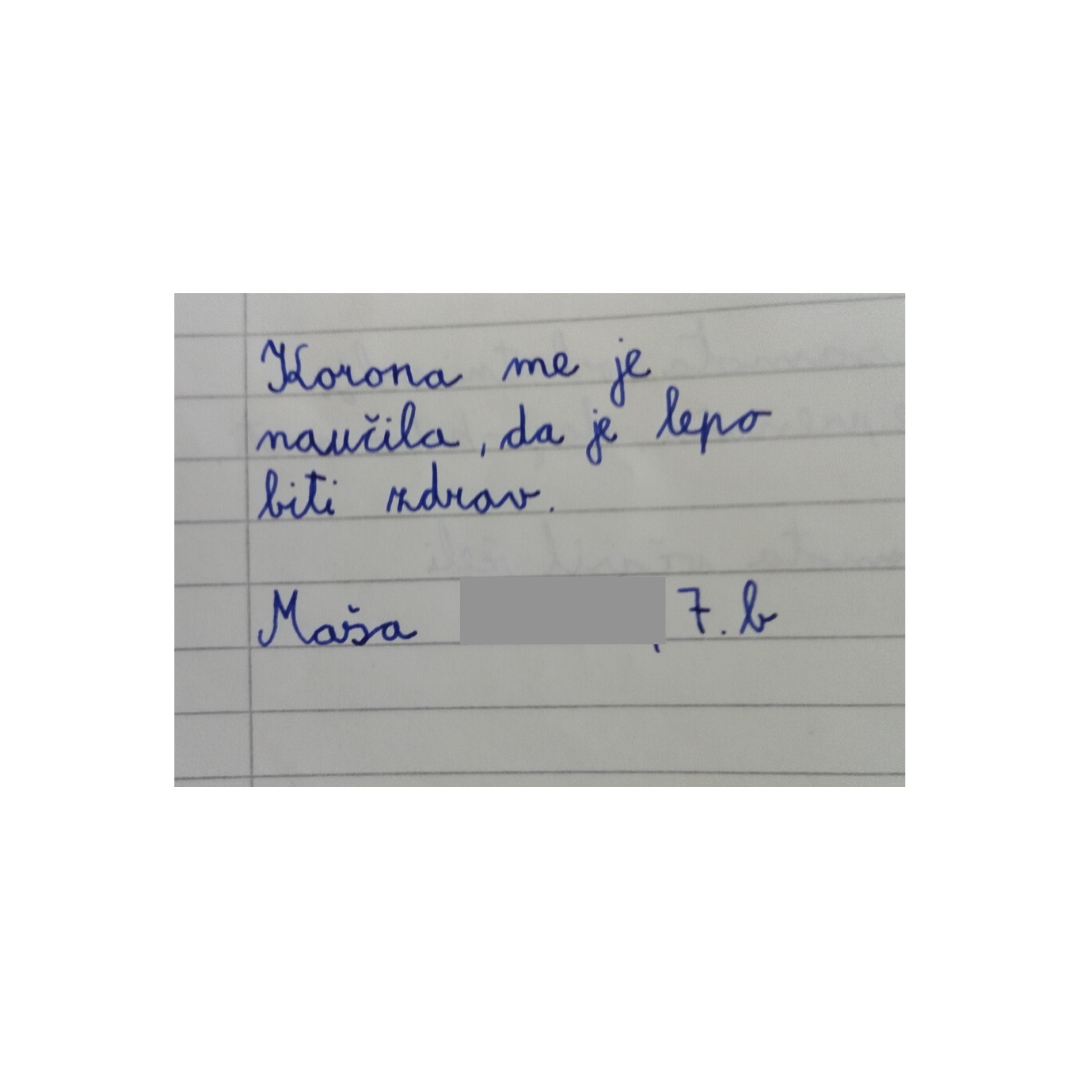 Korona me je
naučila, da je lepo
biti zdrav.
Maša , 7. b